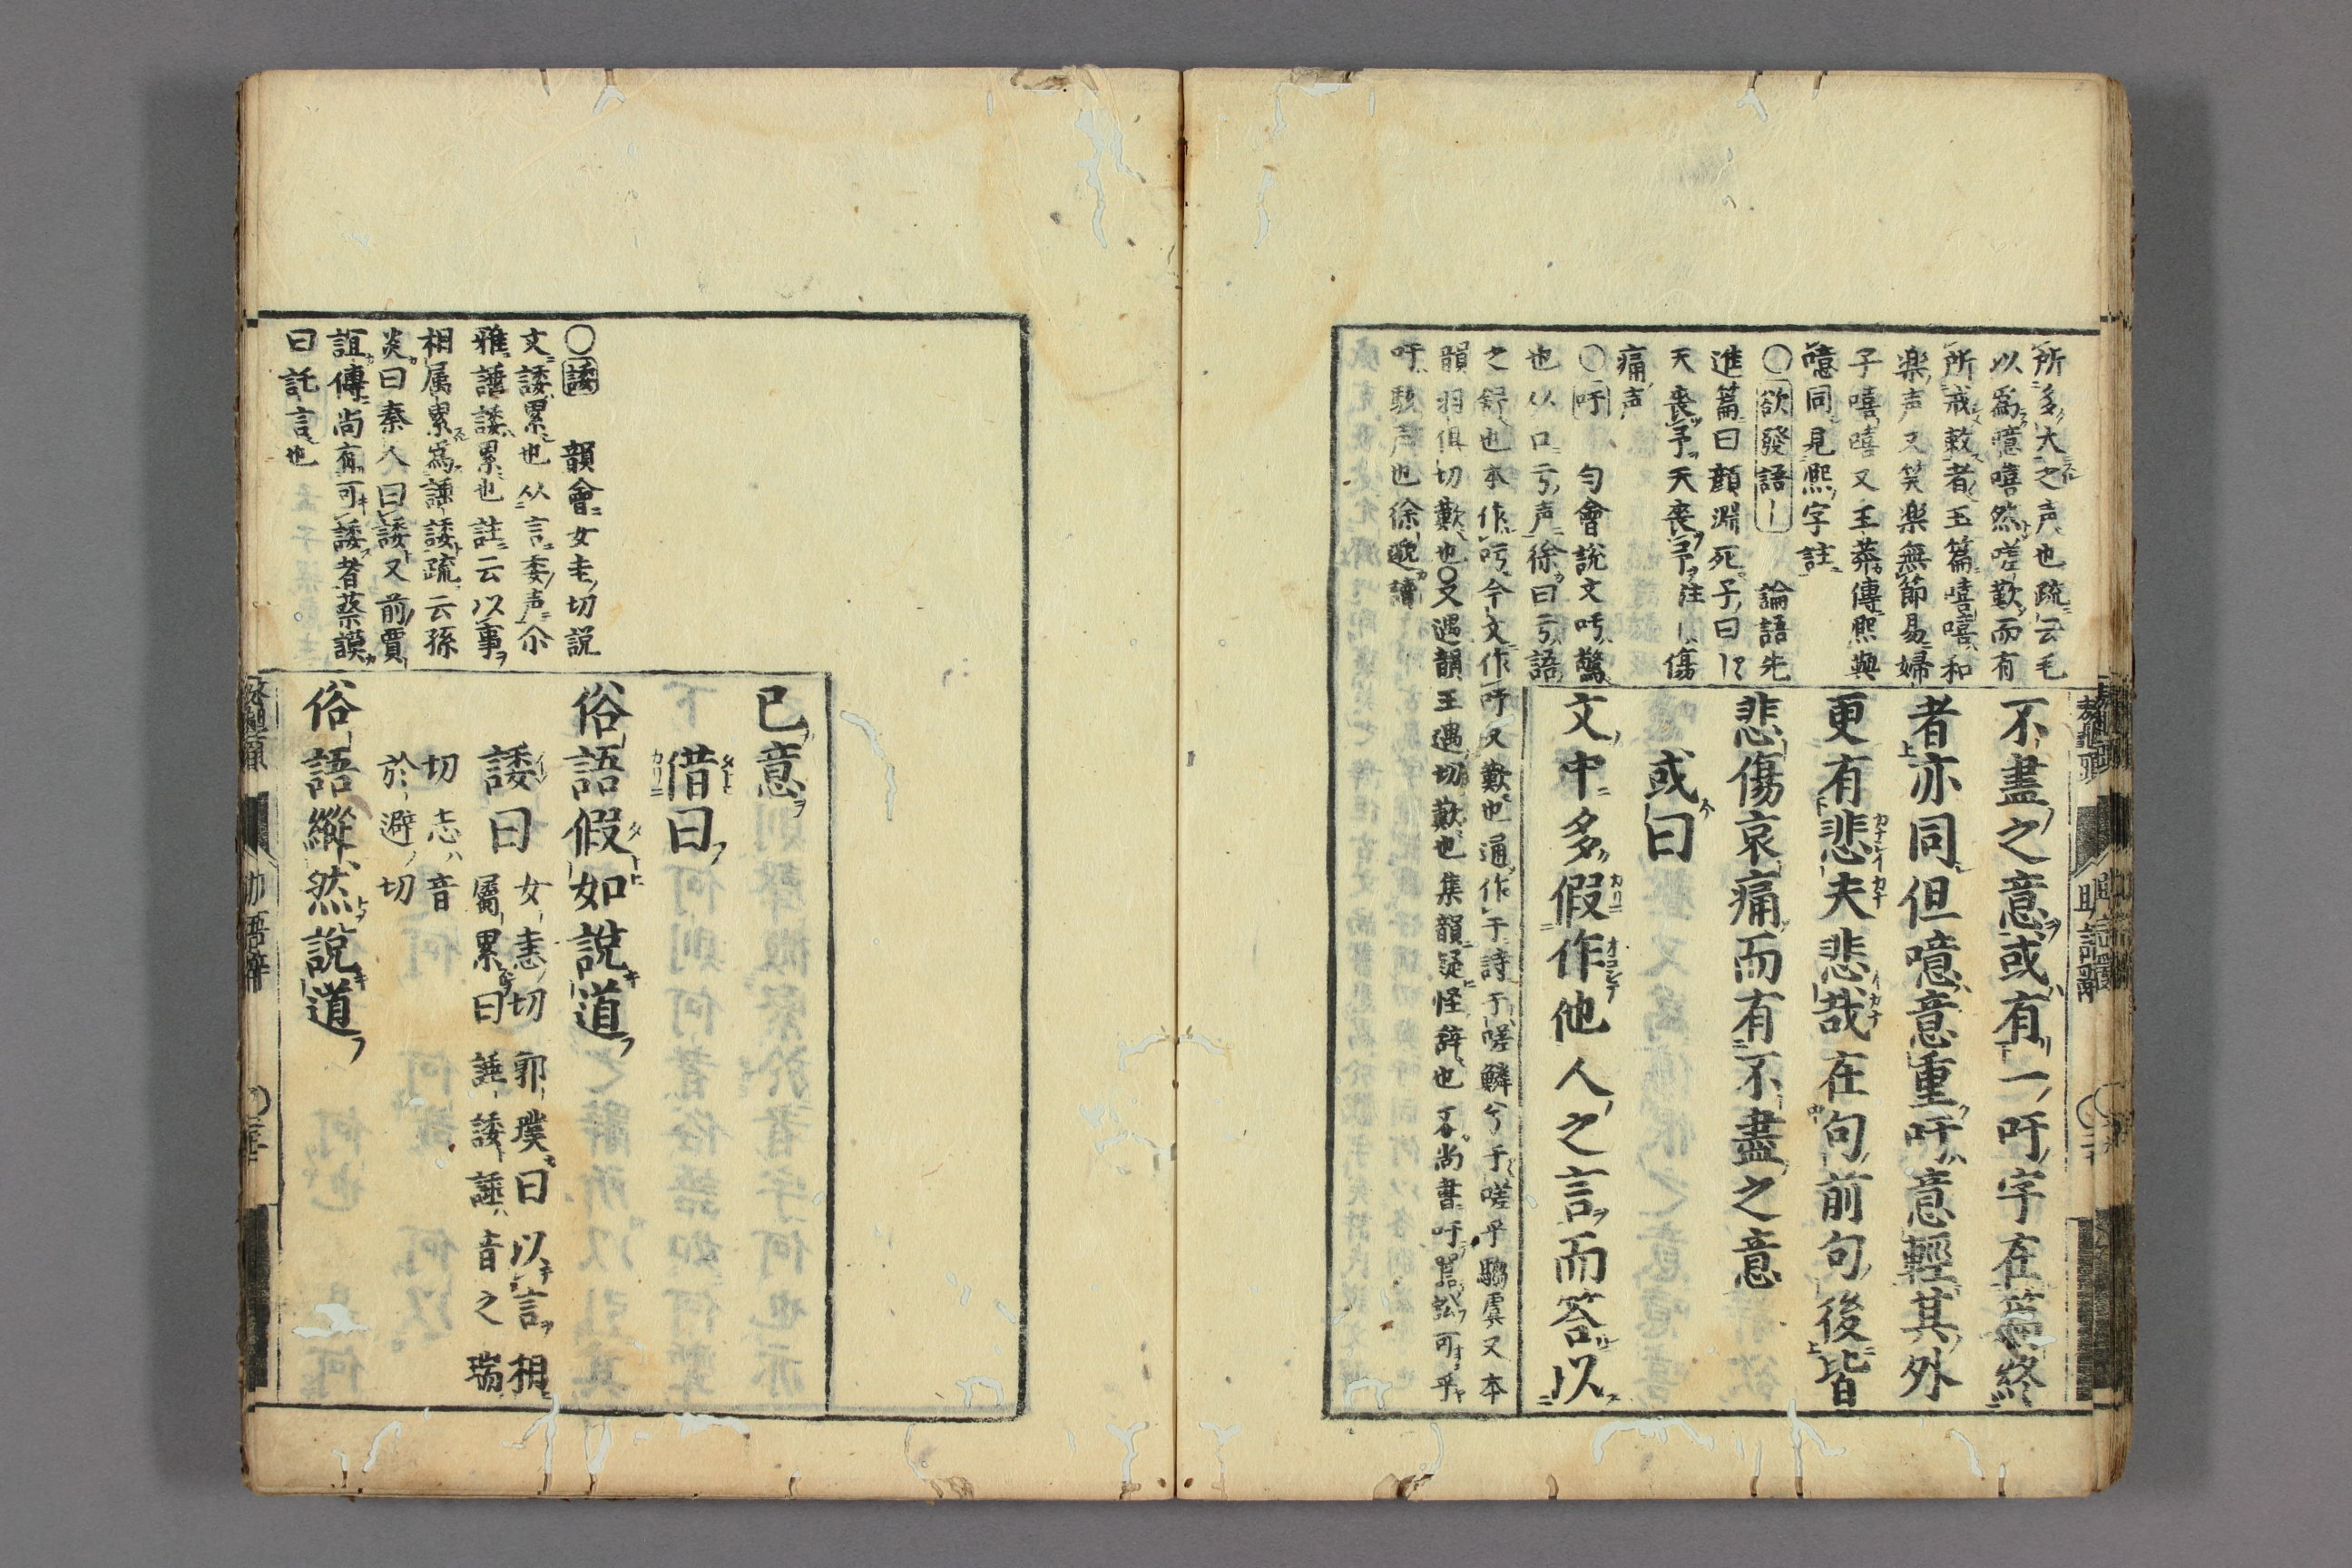 所多大之声也疏云毛
以爲噫嘻然嗟歎而有
所戒敕者玉篇嘻嘻和
楽声又笑楽無節易婦
子嘻嘻又王莽傳熙與
嘻同見熙字註
〇欲發語｜　論語先
進篇曰顔淵死子曰｜〻
天喪予天喪予注｜傷
痛声
〇吁　匀會説文吁驚
也从口亏声徐曰亏語
之舒也本作吁今文作吁又歎也通作于詩于嗟麟兮于嗟乎騶虞又本
韻羽俱切歎也〇又遇韻王遇切歎也集韻疑怪辞也
尚書吁嚚訟可乎
吁駭声也徐邈讀
不盡之意或有一吁字在篇終
者亦同但噫意重吁意輕其外
更有悲夫悲哉在句前句後皆
悲傷哀痛而有不盡之意
或曰
文中多假作他人之言而答以
〇諉　韻會女恚切説
文諉累也从言委声尒
雅諈諉累也註云以事
相属累爲諈諉疏云孫
炎曰秦人曰諉又前賈
誼傳尚有可諉者蔡謨
曰託言也
已意
借曰
俗語假如説道
諉曰
女恚切　郭璞曰以言相
屬累曰諈諉諈音之瑞
切恚音
於避切
俗語縱然説道